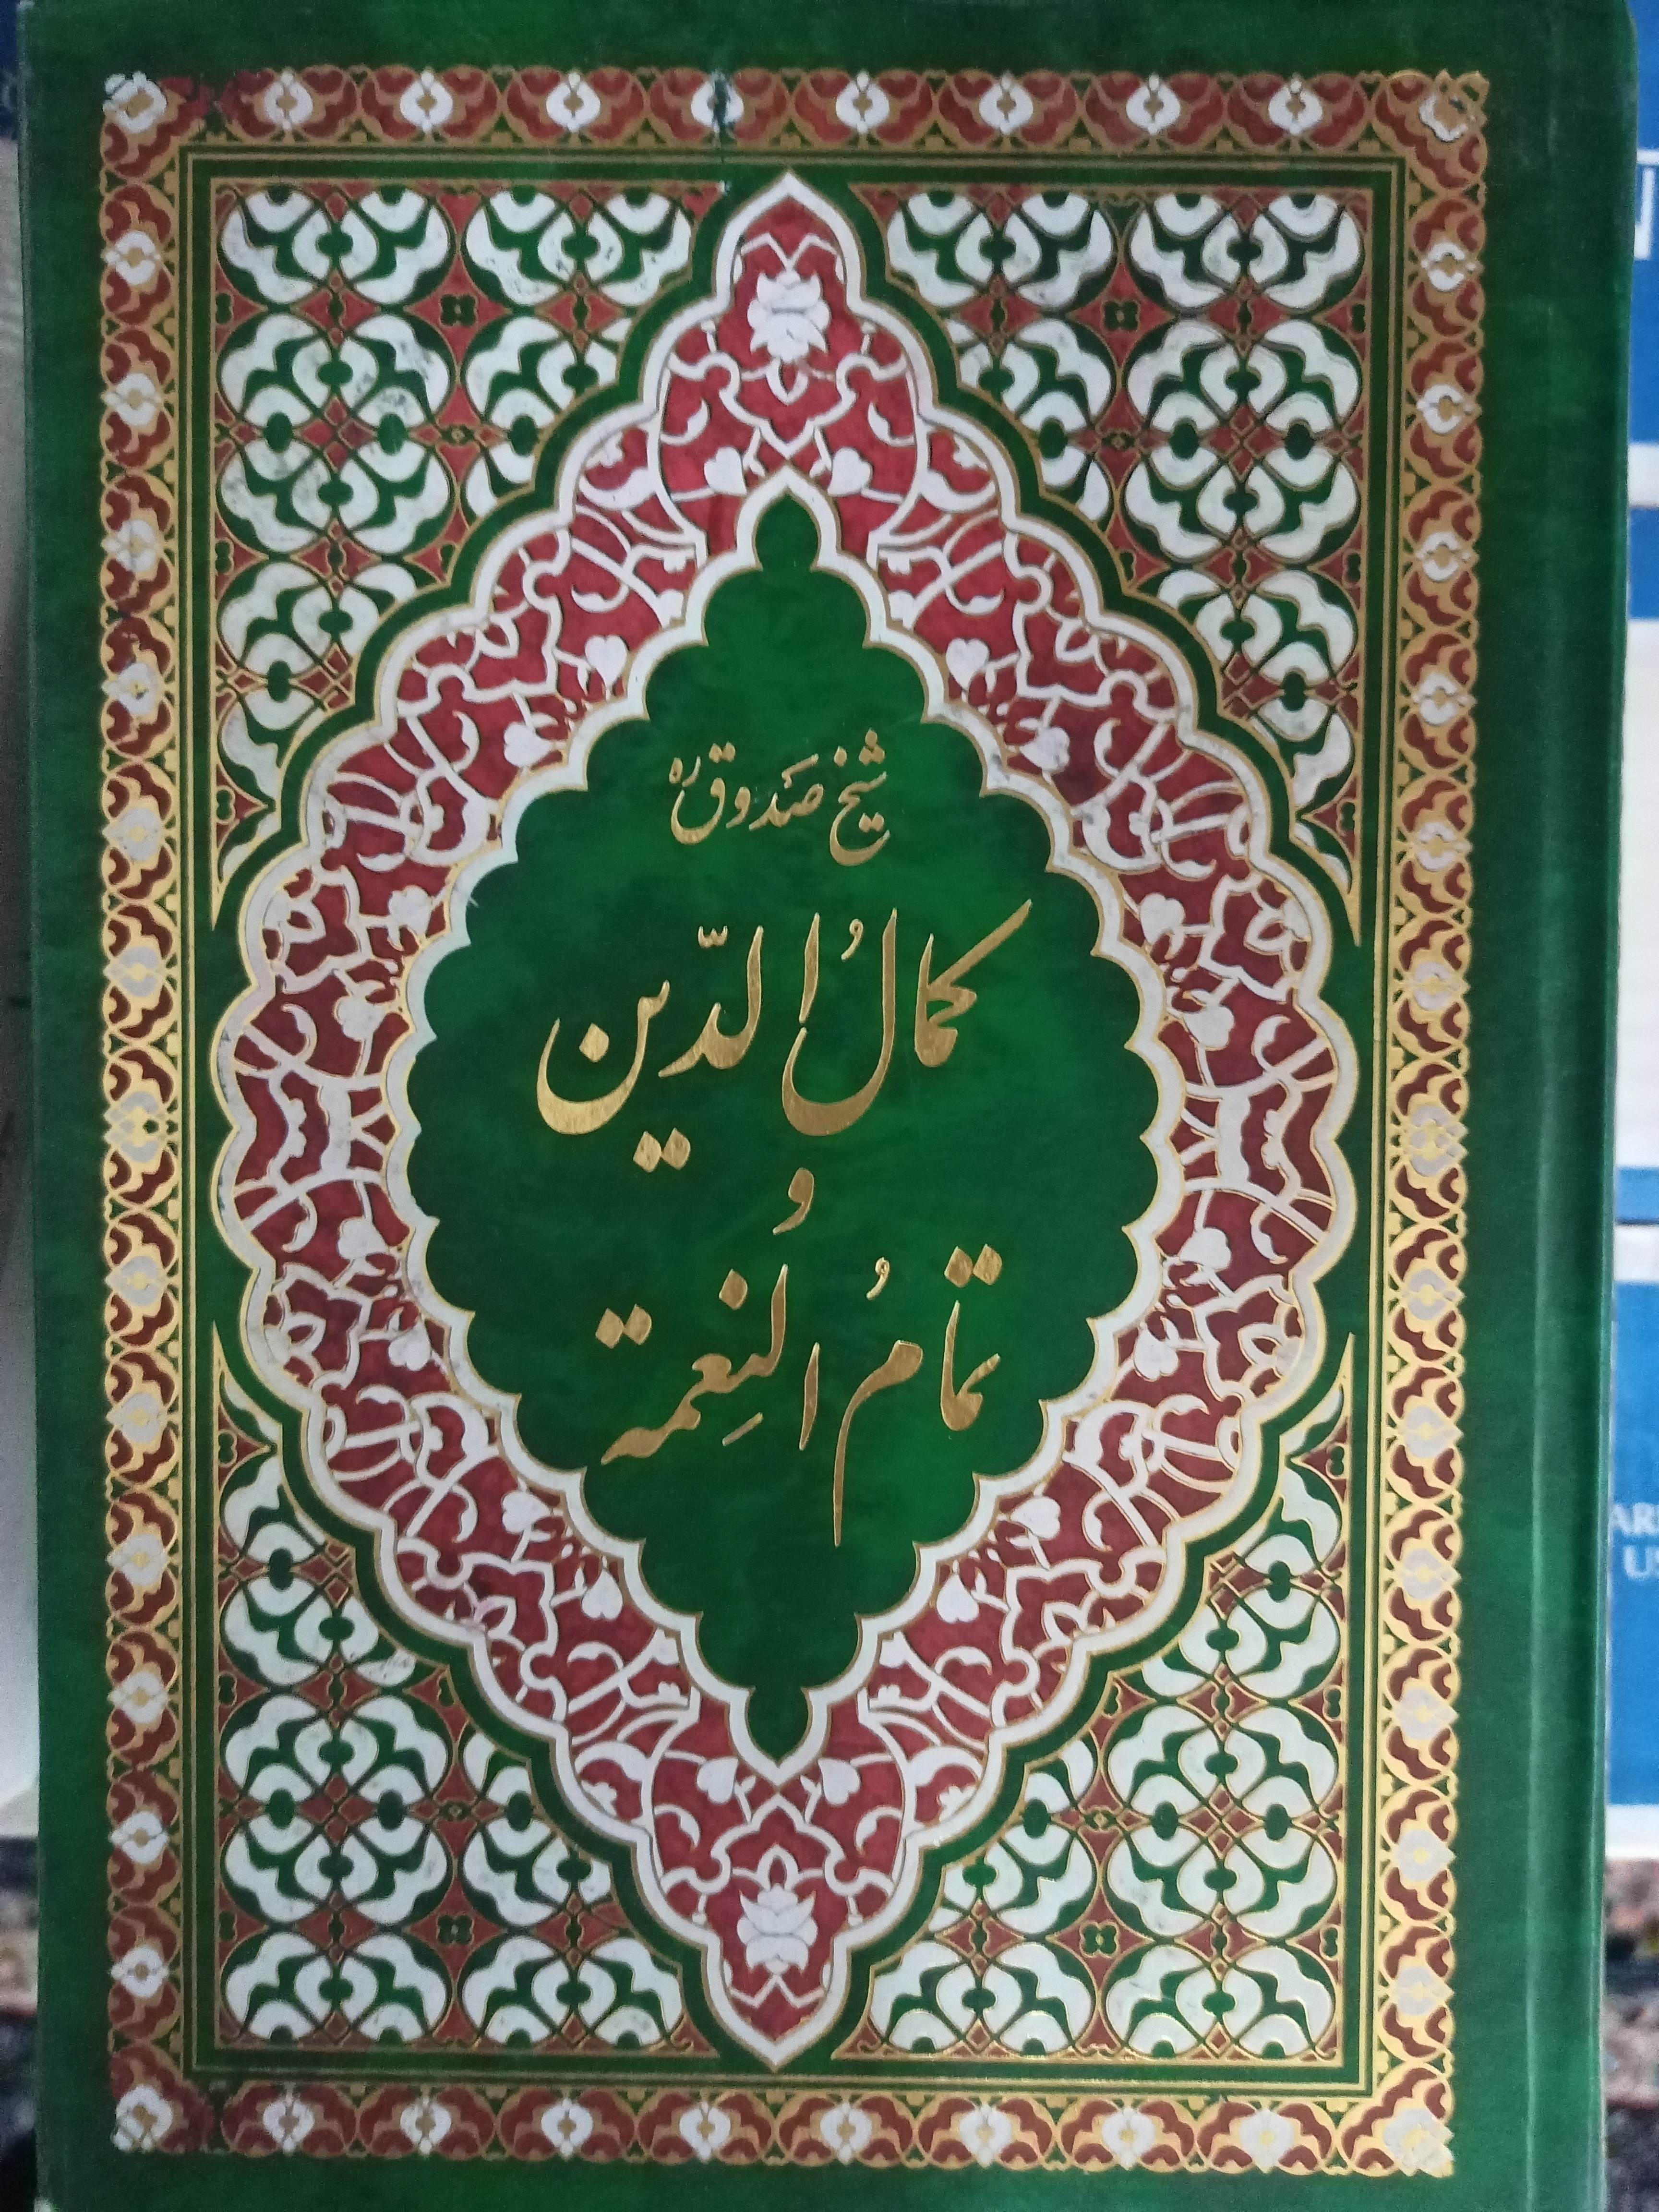 شیخ صدوق ره
کمالُ الدّین
و
تمامُ النِعمة
AR
US